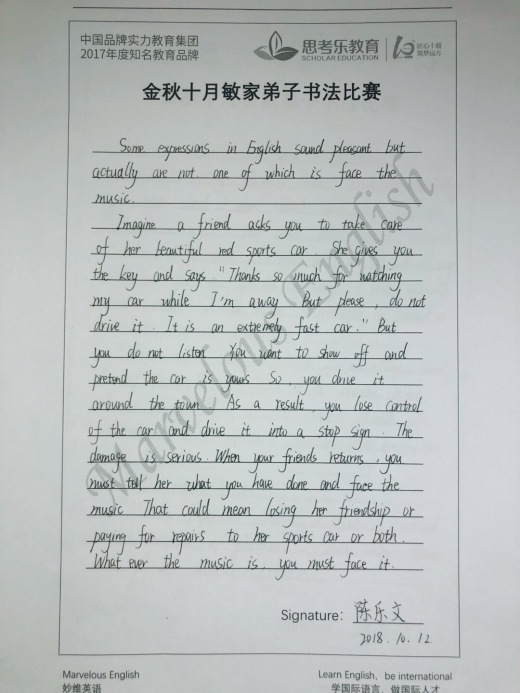 中国品牌实力教育集团
2017年度知名教育品牌
思考乐教育
SCHOLAR EDUCATION
匠心十载
筑梦远方
金秋十月敏家弟子书法比赛
Some expressions in English sound pleasant but
actually are not. one of which is face the
music.
Imagine a friend asks you to take care
of her beautiful red sports car. She gives you
the key and says "Thanks so much for watching
my car while I'm away. But please, do not
drive it. It is an extremely fast car." But
you do not listen. You want to show off and
pretend the car is yours. So, you drive it
around the town. As a result, you lose control
of the car and drive it into a stop sign. The
damage is serious. When your friends returns, you
must tell her what you have done and face the
music. That could mean losing her friendship or
paying for repairs to her sports car or both.
What ever the music is, you must face it.
Marvelous English
Signature: 陈乐文
2018.10.12
Marvelous English
妙维英语
Learn English, be international
学国际语言，做国际人才